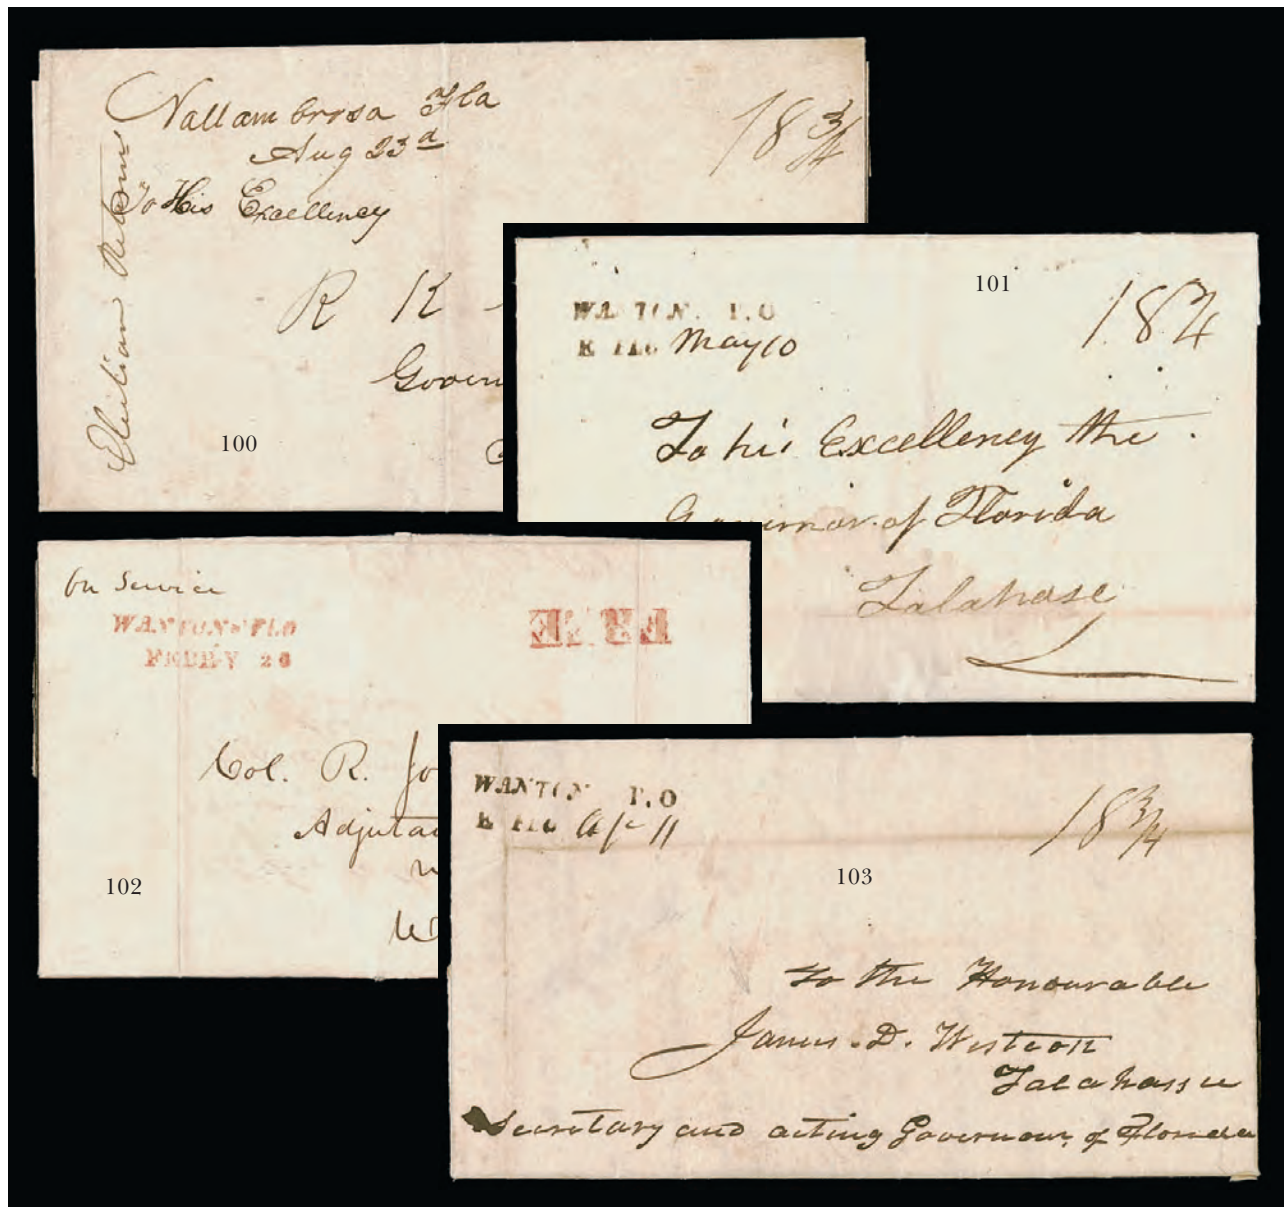 Vallambrosa Fla
Aug 23d
18 3/4
To His Excellency
R K
Govern
Election Returns
100
101
WANTON. P.O
E FLO May 10
18 3/4
To his Excellency the
Governor of Florida
Talahase
on Service
WANTONS FLO
FEBRY 26
FREE
Col. R. Jo
Adjutan
102
WANTON P.O
E FLO Ap 11
18 3/4
103
To the Honourable
James. D. Westcott
Talahassee
Secretary and acting Governour of Florida